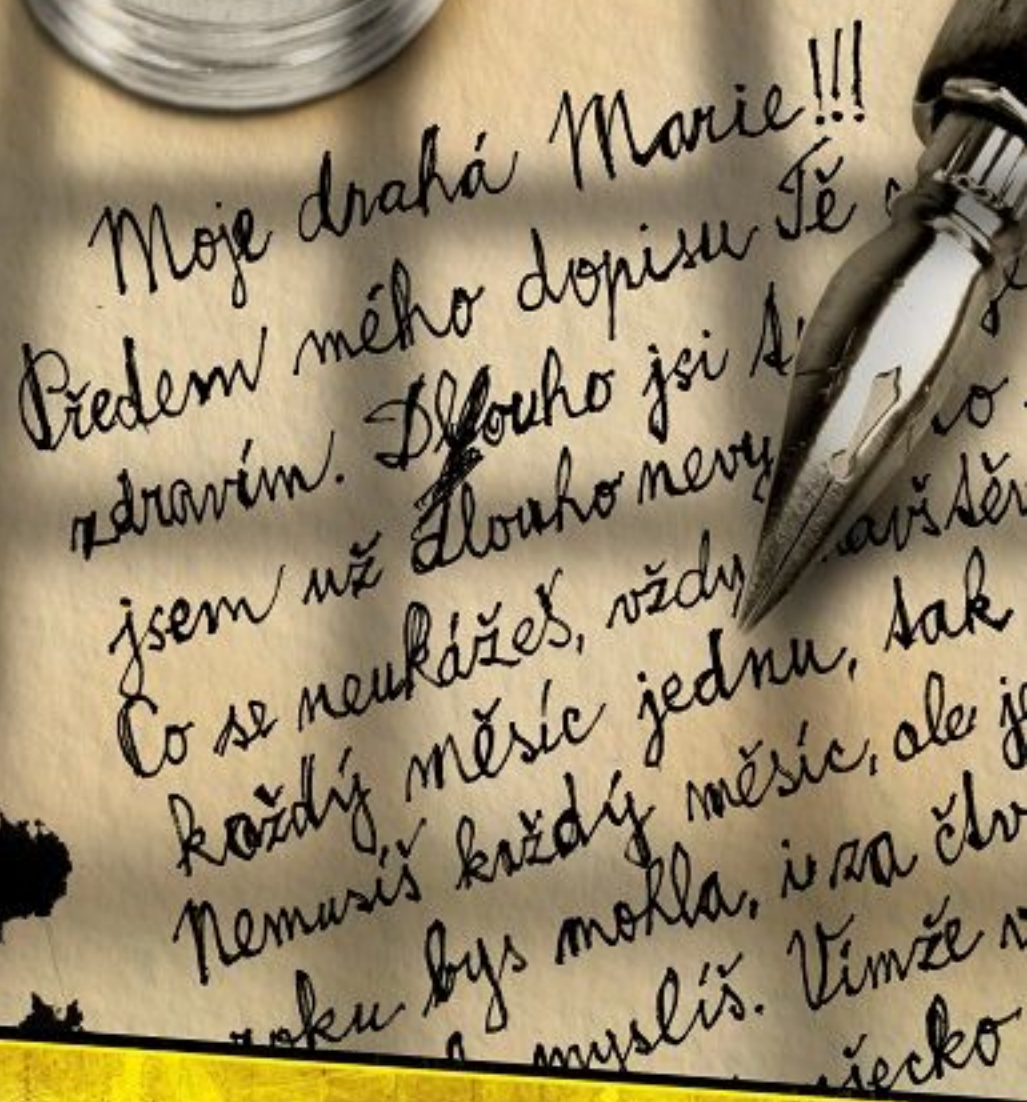 Moje drahá Marie!!!
Předem mého dopisu Tě
zdravím. Dlouho jsi
jsem už dlouho
Co se neukážeš, vždy
každý měsíc jednu, tak
Nemusíš každý měsíc, ale
roku bys mohla, i za
myslíš. Vímže